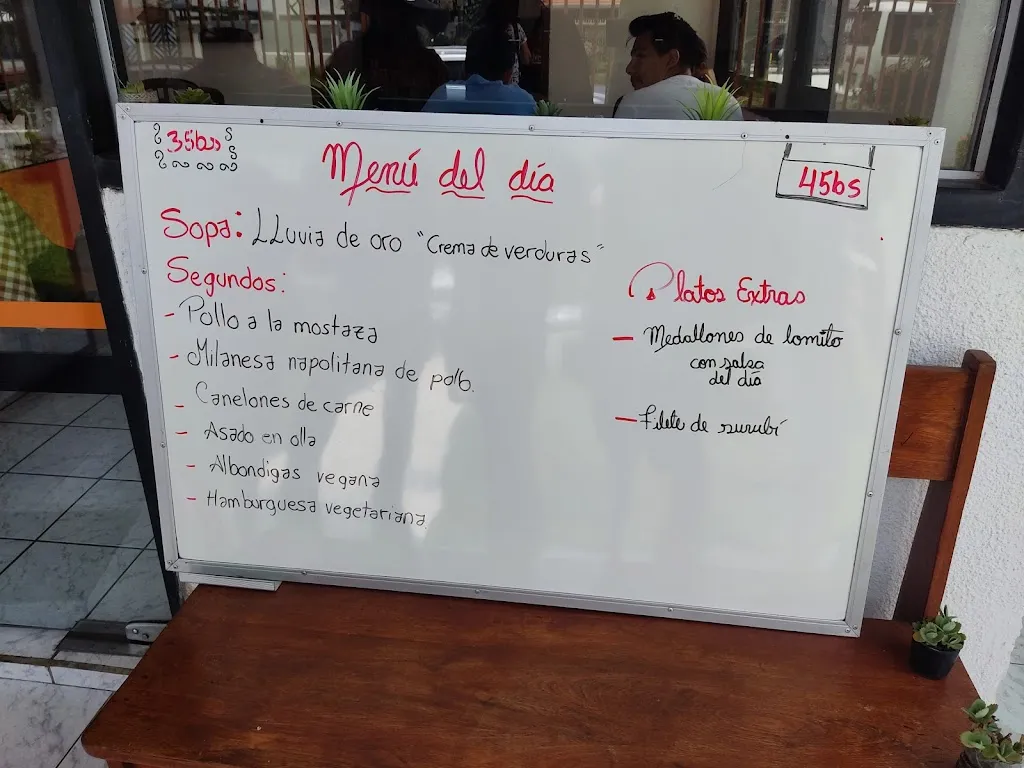 35bs
Menú del día
45bs
Sopa: LLuvia de oro "Crema de verduras"
Segundos:
- Pollo a la mostaza
- Milanesa napolitana de pollo.
- Canelones de carne
- Asado en olla
- Albondigas vegana
- Hamburguesa vegetariana
Platos Extras
- Medallones de lomito
con salsa
del día
- Filete de surubí